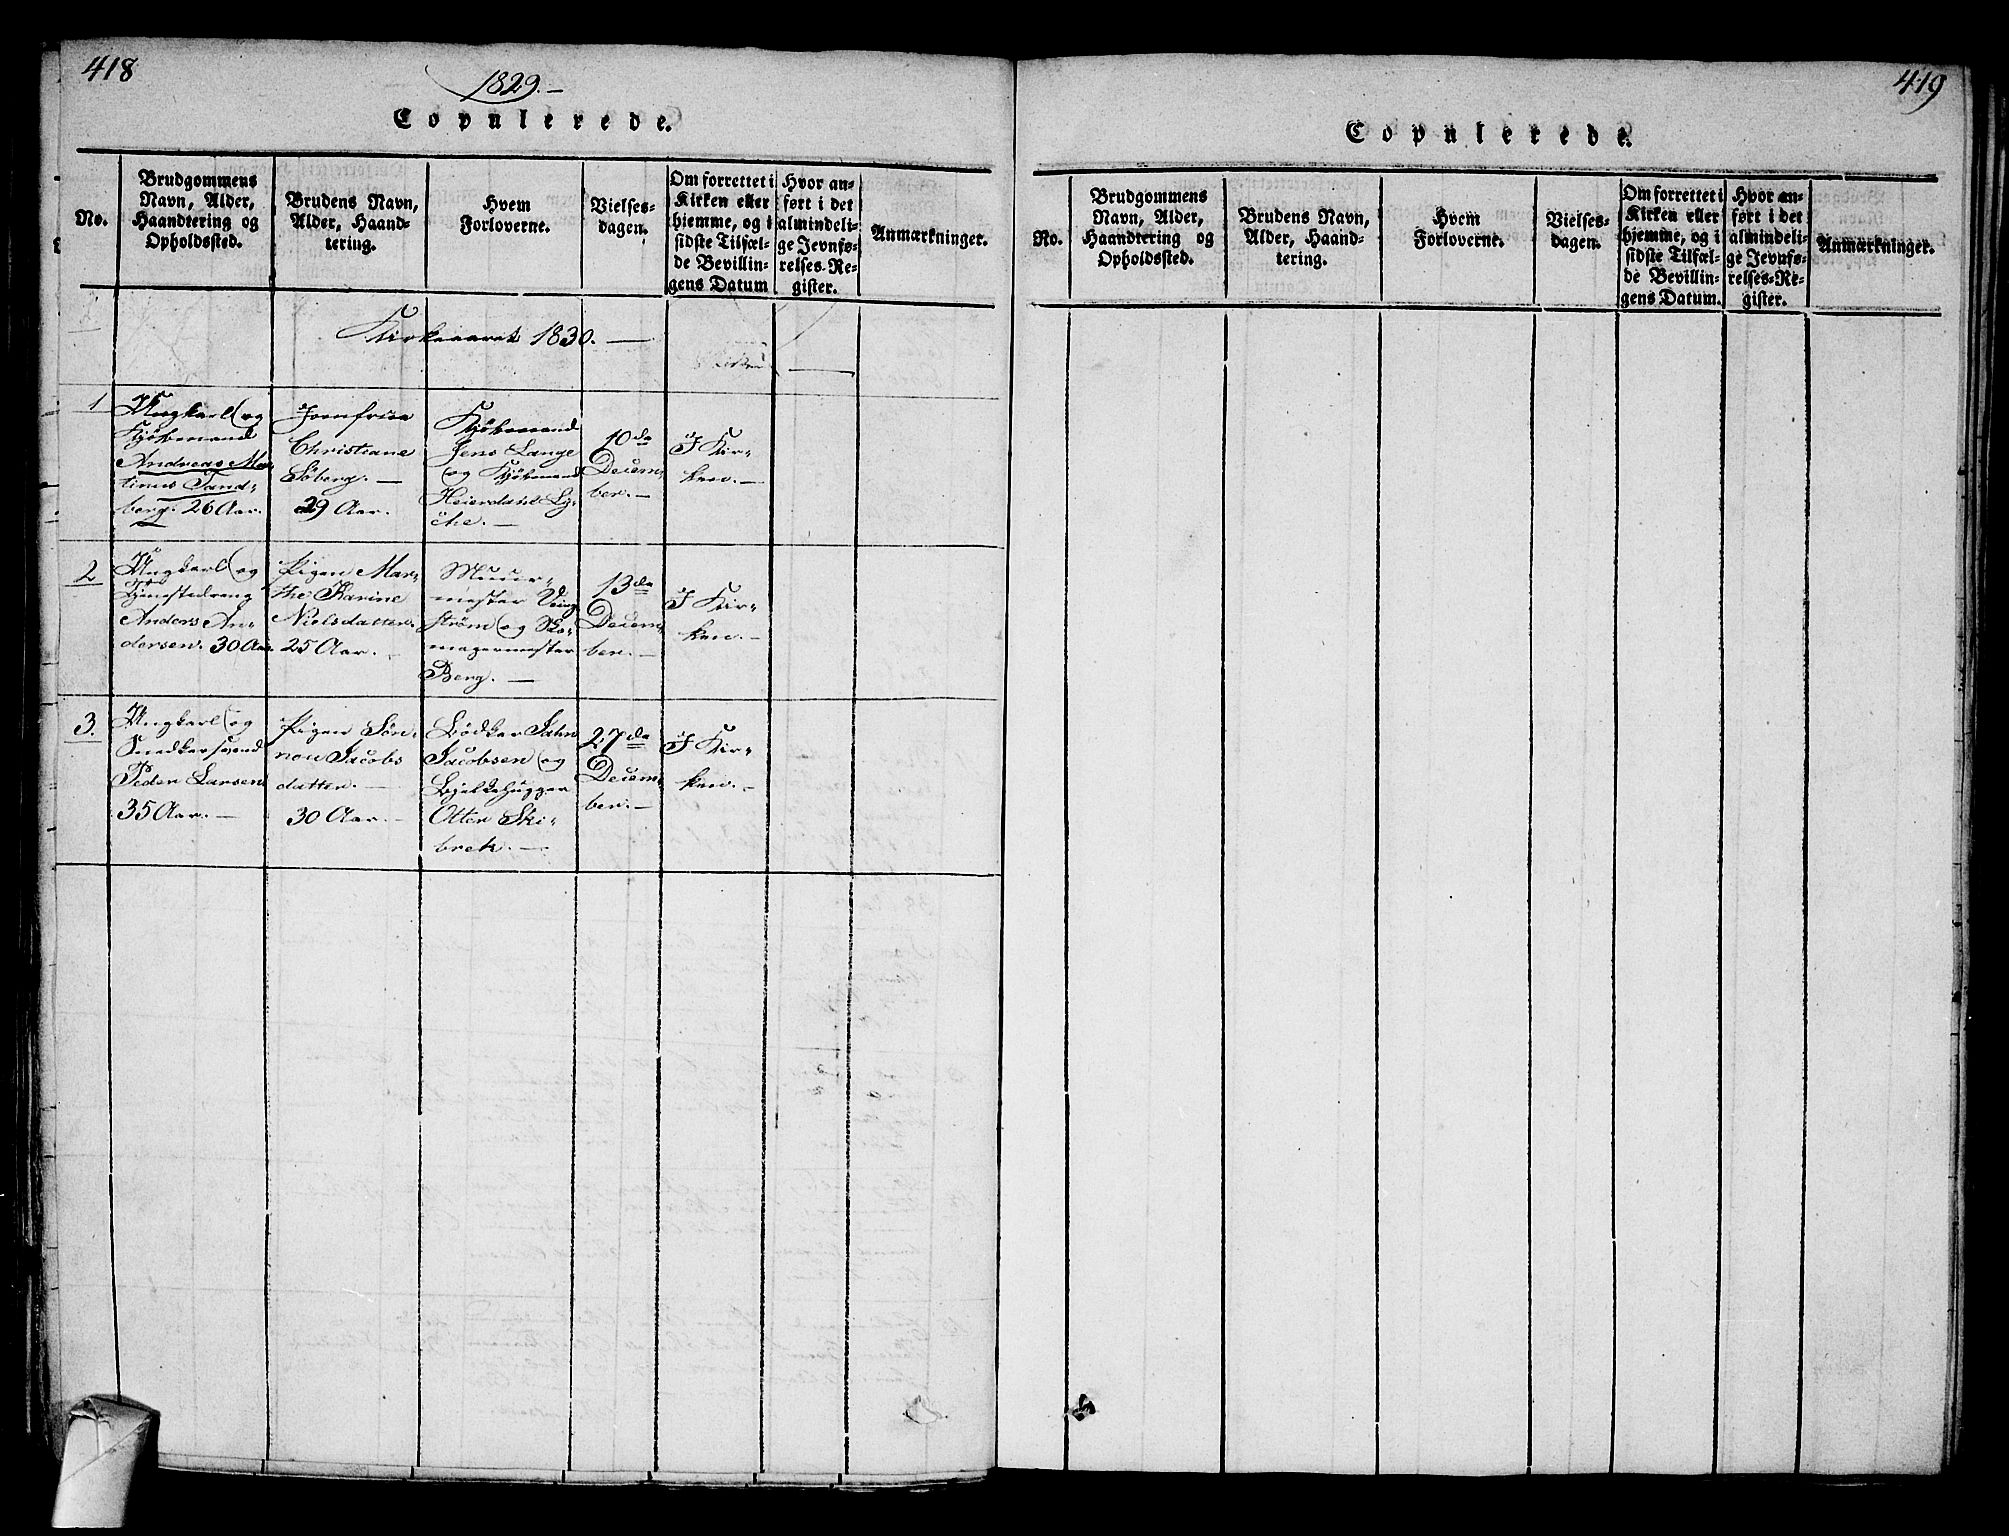 418
1829.—
Copulerede.
No.
Brudgommens
Navn, Alder,
Haandtering og
Opholdssted.
Brudens Navn,
Alder, Haand-
tering.
Hvem
Forloverne.
Vielses-
dagen.
Om forrettet i
Kirken eller
hjemme, og i
sidste Tilfæl-
de Bevillin-
gens Datum
Hvor an-
ført i det
almindeli-
ge Jevnfø-
relses-Re-
gister.
Anmærkninger.
Kirkeaaret 1830. —
1
Ungkarl og
Kjøbmand
Andreas Mar-
tinus Sand-
berg. 26 Aar.
Jomfrue
Christiane
Söberg. —
29 Aar.
Kjøbmand
Jens Lange
og Kjøbmand
Heierdahl Ly-
che. —
10de
Decem-
ber. —
I Kir-
ken. —
2
Ungkarl og
Tjenestedreng
Anders An-
dersen. 30 Aar.
Pigen Mar-
the Karine
Nielsdatter.
25 Aar. —
Muur-
mester
strøm og Sko-
magermester
Berg. —
13de
Decem-
ber. —
I Kir-
ken. —
3.
Ungkarl og
Snedkersvend
Peder Larsen
35 Aar. —
Pigen Søn-
nou Jacobs
datter. —
30 Aar. —
Bødker Jahn
Jacobsen og
Bjelkehugger
Otter Ski-
brek. —
27de
Decem-
ber. —
I Kir-
ken. —
419
Copulerede.
No.
Brudgommens
Navn, Alder,
Haandtering og
Opholdssted.
Brudens Navn,
Alder, Haand-
tering.
Hvem
Forloverne.
Vielses-
dagen.
Om forrettet i
Kirken eller
hjemme, og i
sidste Tilfæl-
de Bevillin-
gens Datum.
Hvor an-
ført i det
almindeli-
ge Jevnfø-
relses-Re-
gister.
Anmærkninger.